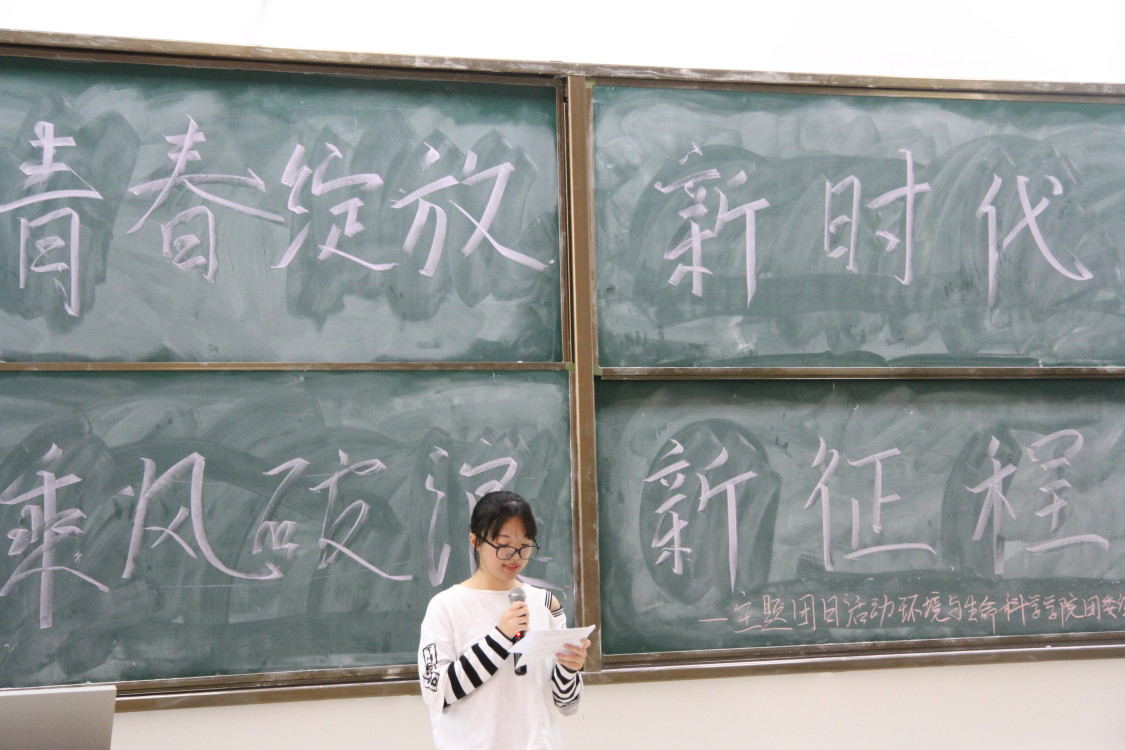 青春绽放
新时代
乘风破浪
新征程
—主题团日活动环境与生命科学学院团委